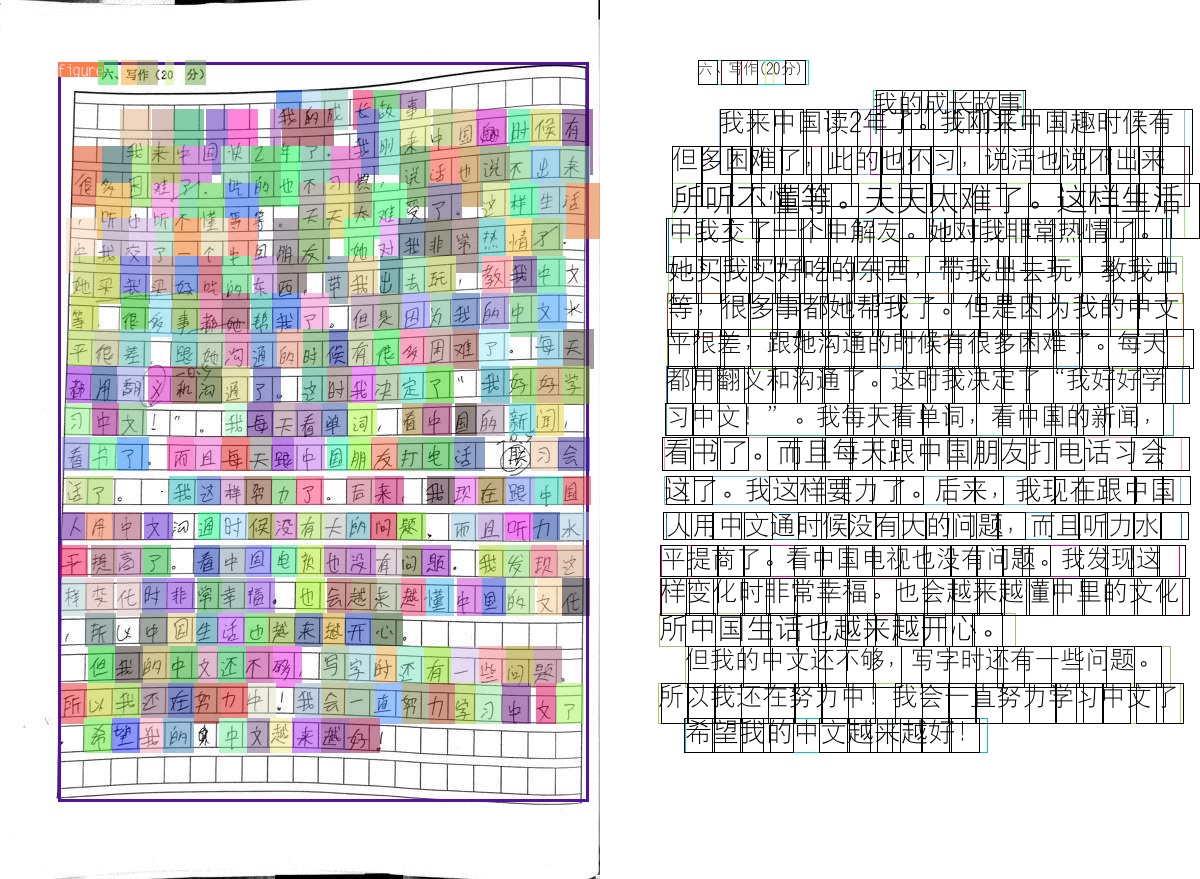 figure
六、写作(20 分)
我的成长故事
我来中国读2年了。我刚来中国的时候有
很多困难了，吃的也不习惯，说话也说不出来
，听也听不懂等等。天天太难受了。这样生活
中我交了一个中国朋友。她对我非常热情了.
她买我买好吃的东西，带我出去玩，教我中文
等，很多事都她帮我了。但是因为我的中文水
平很差，跟她沟通的时候有很多困难了。每天
都用翻义和沟通了。这时我决定了“我好好学
习中文！”。我每天看单词，看中国的新闻，
看书了。而且每天跟中国朋友打电话 联习会
话了。我这样努力了。后来，我现在跟中国
人用中文沟通时候没有大的问题. 而且听力水
平提高了。看中国电视也没有问题。我发现这
样变化时非常幸福。也会越来越懂中国的文化
，所以中国生活也越来越开心。
但我的中文还不够，写字时还有一些问题.
所以我还在努力中！我会一直努力学习中文了
. 希望我的中文越来越好！
六、写作(20分)
我的成长故事
我来中国读2年了。我刚来中国趣时候有
但多困难了，此的也不习，说活也说不出来
所听不懂等。天天太难了。这样生活
中我交了一个中解友。她对我非常热情了。
她买我买好吃的东西，带我出去玩，教我中
等，很多事都她帮我了。但是因为我的中文
平很差，跟她沟通的时候有很多困难了。每天
都用翻义和沟通了。这时我决定了“我好好学
习中文！”。我每天看单词，看中国的新闻，
看书了。而且每天跟中国朋友打电话习会
这了。我这样要力了。后来，我现在跟中国
人用中文通时候没有大的问题，而且听力水
平提商了。看中国电视也没有问题。我发现这
样变化时非常幸福。也会越来越懂中里的文化
所中国生话也越来越开心。
但我的中文还不够，写字时还有一些问题。
所以我还在努力中！我会一直努力学习中文了
希望我的中文越来越好！